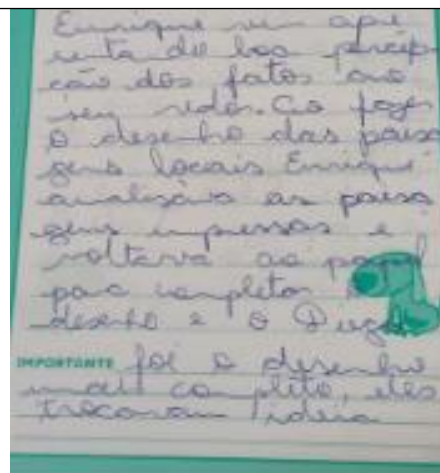 Enrique vem apre
sentado boa percep
ção dos fatos ao
seu redor. Ao fazer
o desenho das paisa
gens locais Enrique
analisava as paisa
gens impressas e
voltava ao papel
para completar o
desenho e o Dugo
IMPORTANTE foi o desenho
mais completo, eles
trocavam ideia